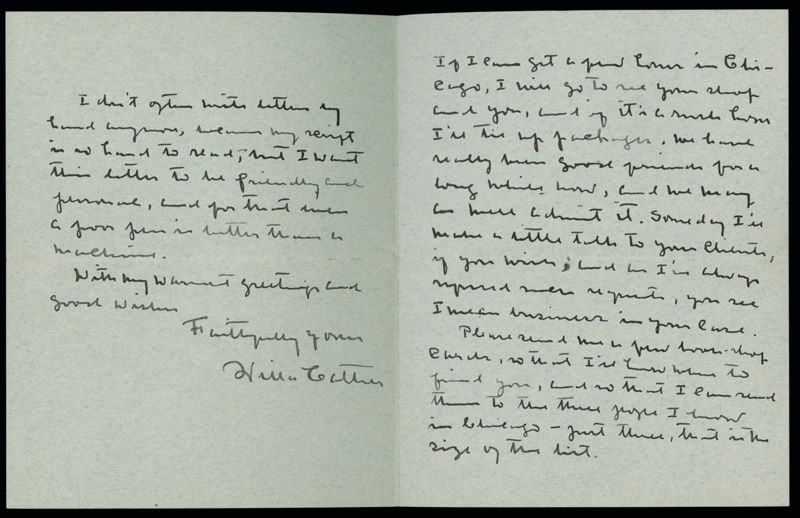 I don't often write letters by
hand anymore, because my script
is so hard to read, but I want
this letter to be friendly and
personal, and for that even
a poor pen is better than a
machine.
With my warmest greetings and
good wishes
Faithfully yours
Willa Cather
If I can get a few hours in Chi-
cago, I will go to see your shop
and you, and if it's a rush hour
I'll tie up packages. We have
really been good friends for a
long while now, and we may
as well admit it. Someday I'll
make a little talk to your clients,
if you wish; and as I've always
refused such requests, you see
I mean business in your case.
Please send me a few book-shop
cards, so that I'll know where to
find you, and so that I can send
them to the three people I know
in Chicago – just three, that is the
size of the list.